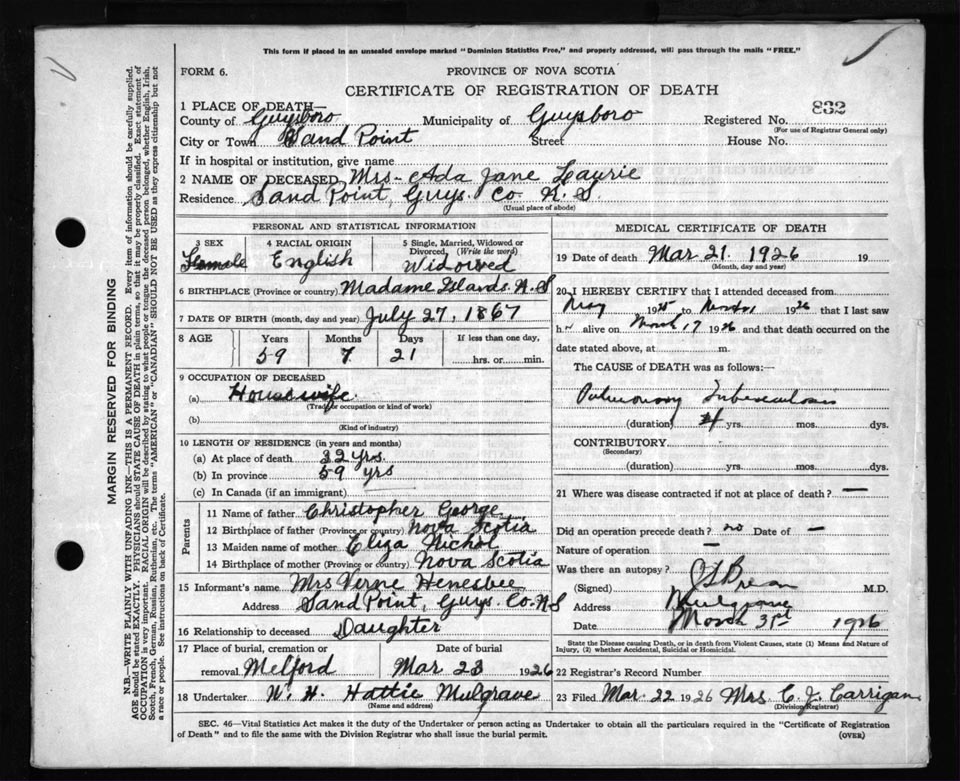 This form if placed in an unsealed envelope marked "Dominion Statistics Free," and properly addressed, will pass through the mails "FREE."
FORM 6.
PROVINCE OF NOVA SCOTIA
CERTIFICATE OF REGISTRATION OF DEATH
1 PLACE OF DEATH—
832
County of Guysboro Municipality of Guysboro Registered No.
(For use of Registrar General only)
City or Town Sand Point Street House No.
If in hospital or institution, give name
2 NAME OF DECEASED Mrs- Ada Jane Laurie
Residence Sand Point, Guys. Co. N.S.
(Usual place of abode)
PERSONAL AND STATISTICAL INFORMATION
3 SEX 4 RACIAL ORIGIN 5 Single, Married, Widowed or Divorced, (Write the word)
Female English Widowed
6 BIRTHPLACE (Province or country) Madame Islands. N.S
7 DATE OF BIRTH (month, day and year) July 27, 1867
8 AGE Years Months Days If less than one day,
59 7 21 hrs. or min.
9 OCCUPATION OF DECEASED
(a) Housewife.
(Trade, occupation or kind of work)
(b)
(Kind of industry)
10 LENGTH OF RESIDENCE (in years and months)
(a) At place of death 32 yrs.
(b) In province 59 yrs
(c) In Canada (if an immigrant)
Parents
11 Name of father Christopher George
12 Birthplace of father (Province or country) Nova Scotia
13 Maiden name of mother Eliza Nichol
14 Birthplace of mother (Province or country) Nova Scotia
15 Informant's name Mrs Verne Henesbee
Address Sand Point, Guys. Co. NS
16 Relationship to deceased Daughter
17 Place of burial, cremation or removal Date of burial
Melford Mar 23 1926
18 Undertaker W. H. Hattie Mulgrave
(Name and address)
MEDICAL CERTIFICATE OF DEATH
19 Date of death Mar 21. 1926 19
(Month, day and year)
20 I HEREBY CERTIFY that I attended deceased from
May 1925 to 1926 that I last saw
h alive on March 17 1926 and that death occurred on the
date stated above, at m.
The CAUSE of DEATH was as follows:—
Pulmonary Tuberculosis
(duration) 4 yrs. mos. dys.
CONTRIBUTORY
(Secondary)
(duration) yrs. mos. dys.
21 Where was disease contracted if not at place of death? —
Did an operation precede death? no Date of —
Nature of operation —
Was there an autopsy?
(Signed) M.D.
Address Mulgrave
Date March 31st 1926
State the Disease causing Death, or in death from Violent Causes, state (1) Means and Nature of Injury, (2) whether Accidental, Suicidal or Homicidal.
22 Registrar's Record Number
23 Filed Mar. 22 1926 Mrs. C. J. Carrigan
(Division Registrar)
SEC. 46—Vital Statistics Act makes it the duty of the Undertaker or person acting as Undertaker to obtain all the particulars required in the "Certificate of Registration
of Death" and to file the same with the Division Registrar who shall issue the burial permit.
(OVER)
MARGIN RESERVED FOR BINDING
N.B.—WRITE PLAINLY WITH UNFADING INK—THIS IS A PERMANENT RECORD. Every item of information should be carefully supplied.
AGE should be stated EXACTLY. PHYSICIANS should STATE CAUSE OF DEATH in plain terms, so that it may be properly classified. Exact statement of
OCCUPATION is very important. RACIAL ORIGIN will be described by stating to what people or tongue the deceased person belonged, whether English, Irish,
Scotch, French, German, Russian, Ruthenian, etc. The terms "AMERICAN" or "CANADIAN" SHOULD NOT BE USED as they express citizenship but not
a race or people. See instructions on back of Certificate.